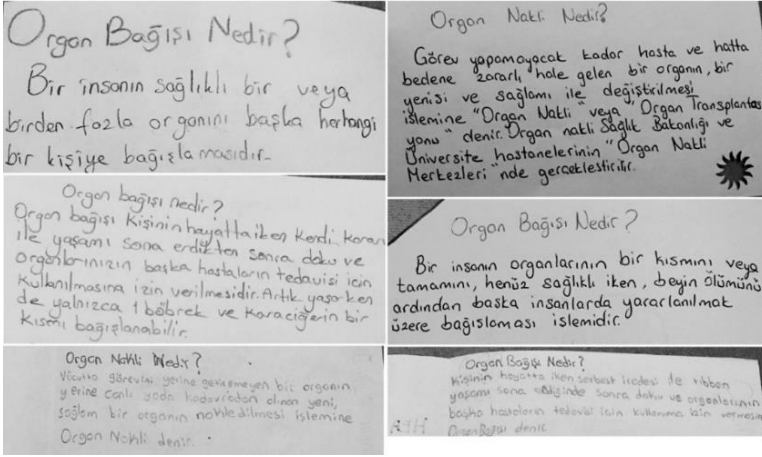 Organ Bağışı Nedir?
Bir insanın sağlıklı bir veya
birden fazla organını başka herhangi
bir kişiye bağışlamasıdır.
Organ bağışı nedir?
Organ bağışı kişinin hayatta iken kendi kararı
ile yaşamı sona erdikten sonra doku ve
organlarınızın başka hastaların tedavisi için
kullanılmasına izin verilmesidir. Artık yaşarken
de yalnızca 1 böbrek ve karaciğerin bir
kısmı bağışlanabilir.
Organ Nakli Nedir?
Vücutta görevini yerine getiremeyen bir organın
yerine canlı yada kadavradan alınan yeni,
sağlam bir organın nakledilmesi işlemine
Organ Nakli denir.
Organ Nakli Nedir?
Görev yapamayacak kadar hasta ve hatta
bedene zararlı hale gelen bir organın, bir
yenisi ve sağlamı ile değiştirilmesi
işlemine "Organ Nakli" veya "Organ Transplantas
yonu" denir. Organ nakli Sağlık Bakanlığı ve
Üniversite hastanelerinin "Organ Nakli
Merkezleri"nde gerçekleştirilir.
Organ Bağışı Nedir?
Bir insanın organlarının bir kısmını veya
tamamını, henüz sağlıklı iken, beyin ölümünü
ardından başka insanlarda yararlanılmak
üzere bağışlaması işlemidir.
Organ Bağışı Nedir?
Kişinin hayatta iken serbest iradesi ile
yaşamı sona sonra doku ve organlarının
başka hastaların tedavisi için izin vermesine
Organ Bağışı denir